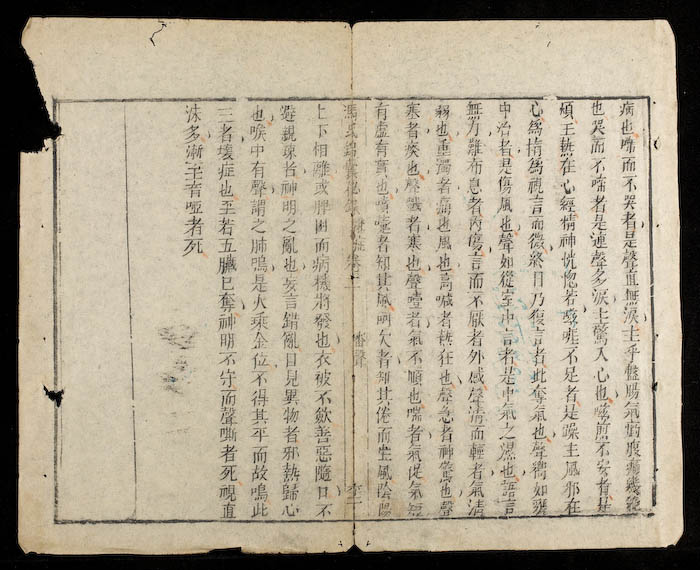 病也啼而不哭者是聲直無淚主乎盤腸氣痛腹痛
也哭而不啼者是連聲多淚主驚入心也啼煎不安者是
煩主熱在心經精神恍惚若啼哇不足者是躁主風邪在
心為情為視言而微終日乃復言者此奪氣也聲濁如甕
中沿者是傷風也聲如從室中言者是中氣之濕也語言
無力難布息者內傷言而不厭者外感聲清而輕者氣清
弱也重濁者痛也風也高喊者熱狂也聲急者神驚也聲
塞者痰也聲戰者寒也聲噎者氣不順也喘者氣促氣短
有虛有實也噴嚏者知其風呵欠者知其倦而坐風陰陽
馮氏錦囊秘錄 雜症卷二 審聲
上下相離或脾困而病機將發也衣被不斂善惡隨口不
避親疎者神明之亂也妄言錯亂目見異物者邪熱歸心
也喉中有聲謂之肺鳴是火乘金位不得其平而故鳴此
三者壞症也至若五臟已奪神明不守而聲嘶者死視直
殊多漸至音啞者死